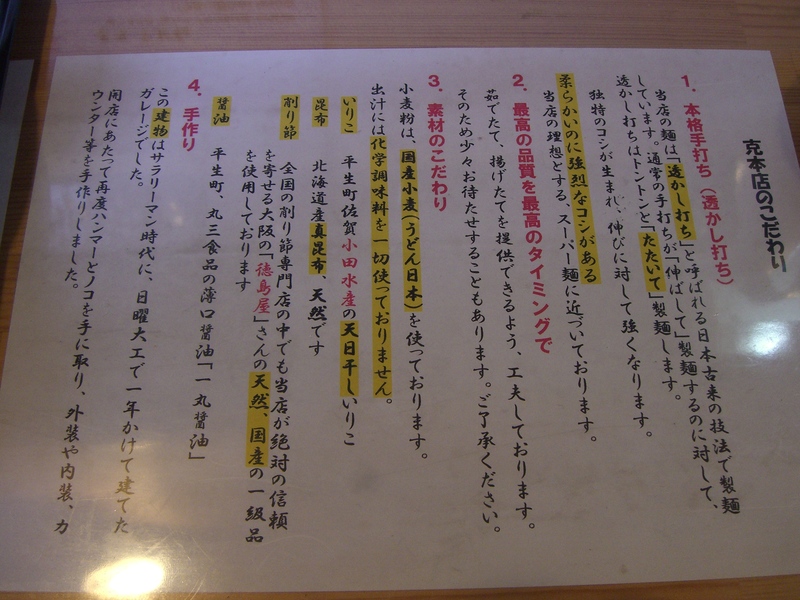 克本店のこだわり
1. 本格手打ち（透かし打ち）
当店の麺は「透かし打ち」と呼ばれる日本古来の技法で製麺
しています。通常の手打ちが「伸ばして」製麺するのに対して、
透かし打ちはトントンと「たたいて」製麺します。
独特のコシが生まれ、伸びに対して強くなります。
柔らかいのに強烈なコシがある
当店の理想とする、スーパー麺に近づいております。
2. 最高の品質を最高のタイミングで
茹でたて、揚げたてを提供できるよう、工夫しております。
そのため少々お待たせすることもあります。ご了承ください。
3. 素材のこだわり
小麦粉は、国産小麦（うどん日本）を使っております。
出汁には化学調味料を一切使っておりません。
いりこ 平生町佐賀小田水産の天日干しいりこ
昆布 北海道産真昆布、天然です
削り節 全国の削り節専門店の中でも当店が絶対の信頼
を寄せる大阪の「徳島屋」さんの天然、国産の一級品
を使用しております
醤油 平生町、丸三食品の薄口醤油「一丸醤油」
4. 手作り
この建物はサラリーマン時代に、日曜大工で一年かけて建てた
ガレージでした。
開店にあたって再度ハンマーとノコを手に取り、外装や内装、カ
ウンター等を手作りしました。